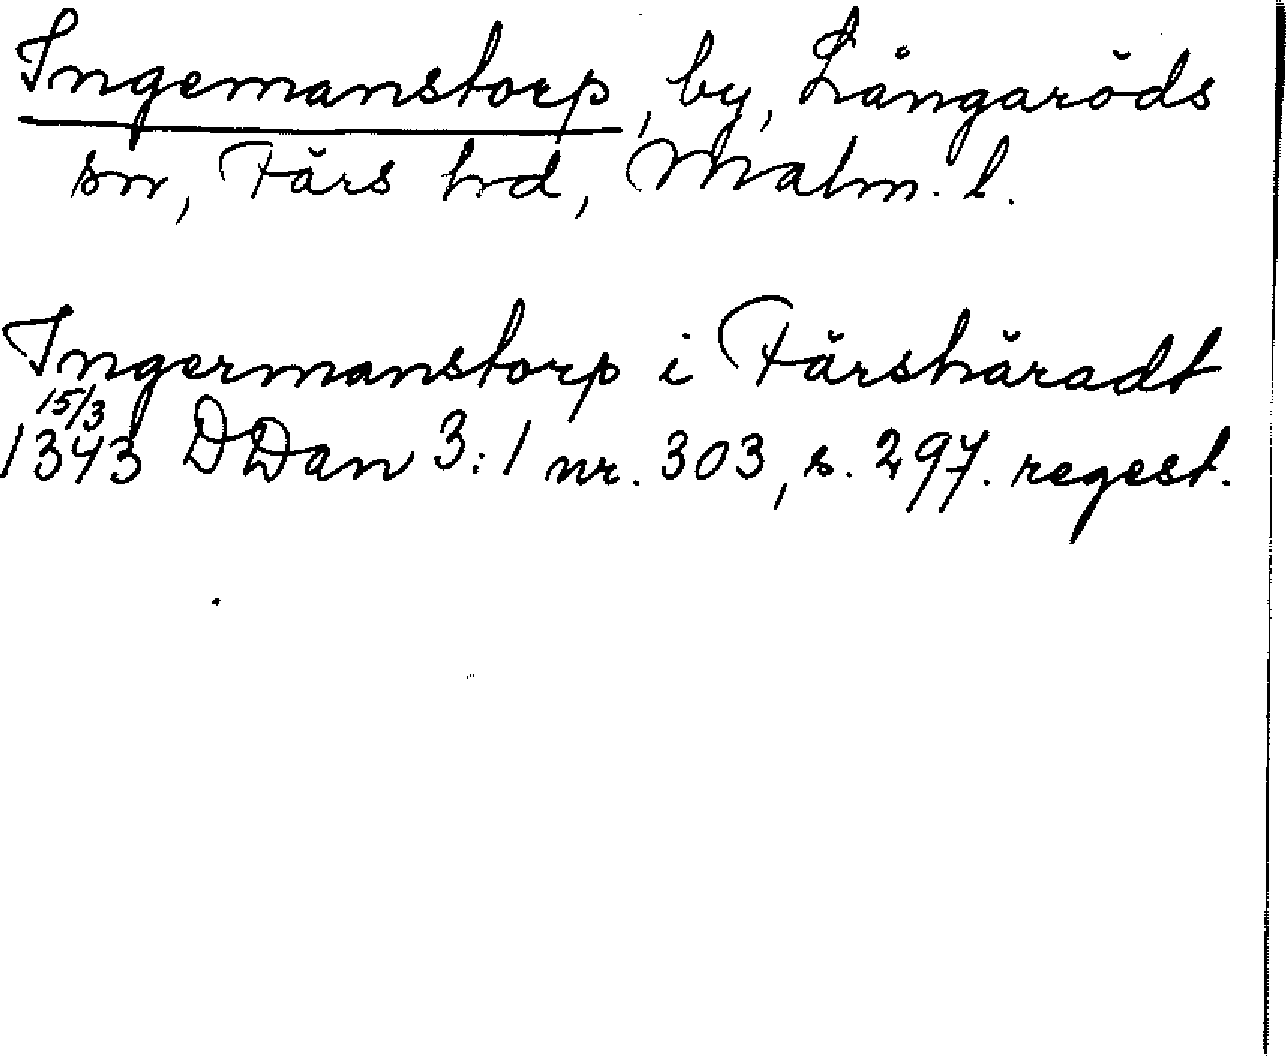 Ingemanstorp, by, Långaröds
sn, Färs hd, Malm. l.
Ingermanstorp i Färshäradt
15/3
1343 DDan 3:1 nr. 303, s. 297. regest.